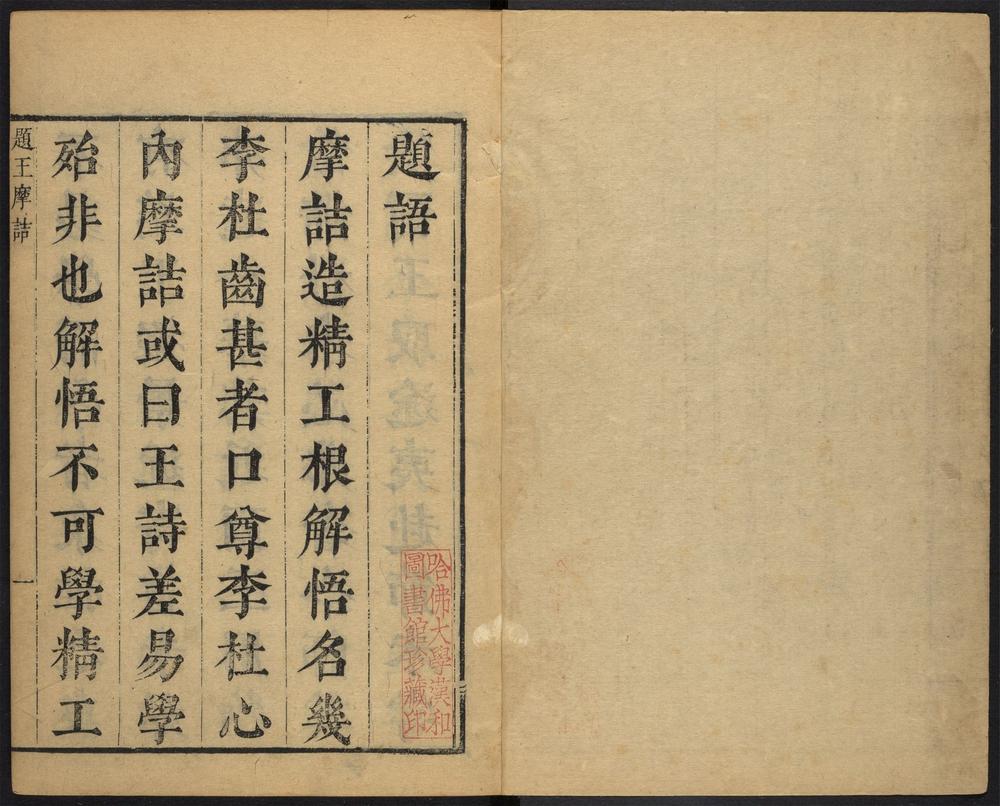 題語
摩詰造精工根解悟名幾
李杜齒甚者口尊李杜心
內摩詰或曰王詩差易學
殆非也解悟不可學精工
題王摩詰
一
哈佛大學漢和
圖書館珍藏印